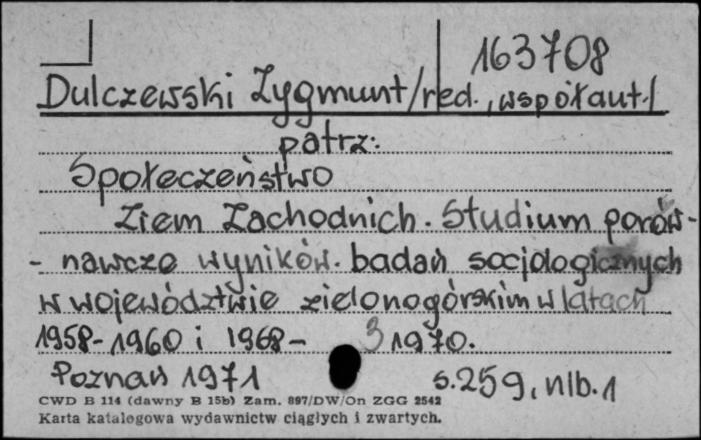 163708
Dulczewski Zygmunt/red., współaut./
patrz:
Społeczeństwo
Ziem Zachodnich. Studium porów-
- nawcze wyników. badań socjologicznych
w województwie zielonogórskim w latach
1958-1960 i 1968- 3 1970.
Poznań 1971 s.259, nlb.1
CWD B 114 (dawny B 15b) Zam. 897/DW/On ZGG 2542
Karta katalogowa wydawnictw ciągłych i zwartych.